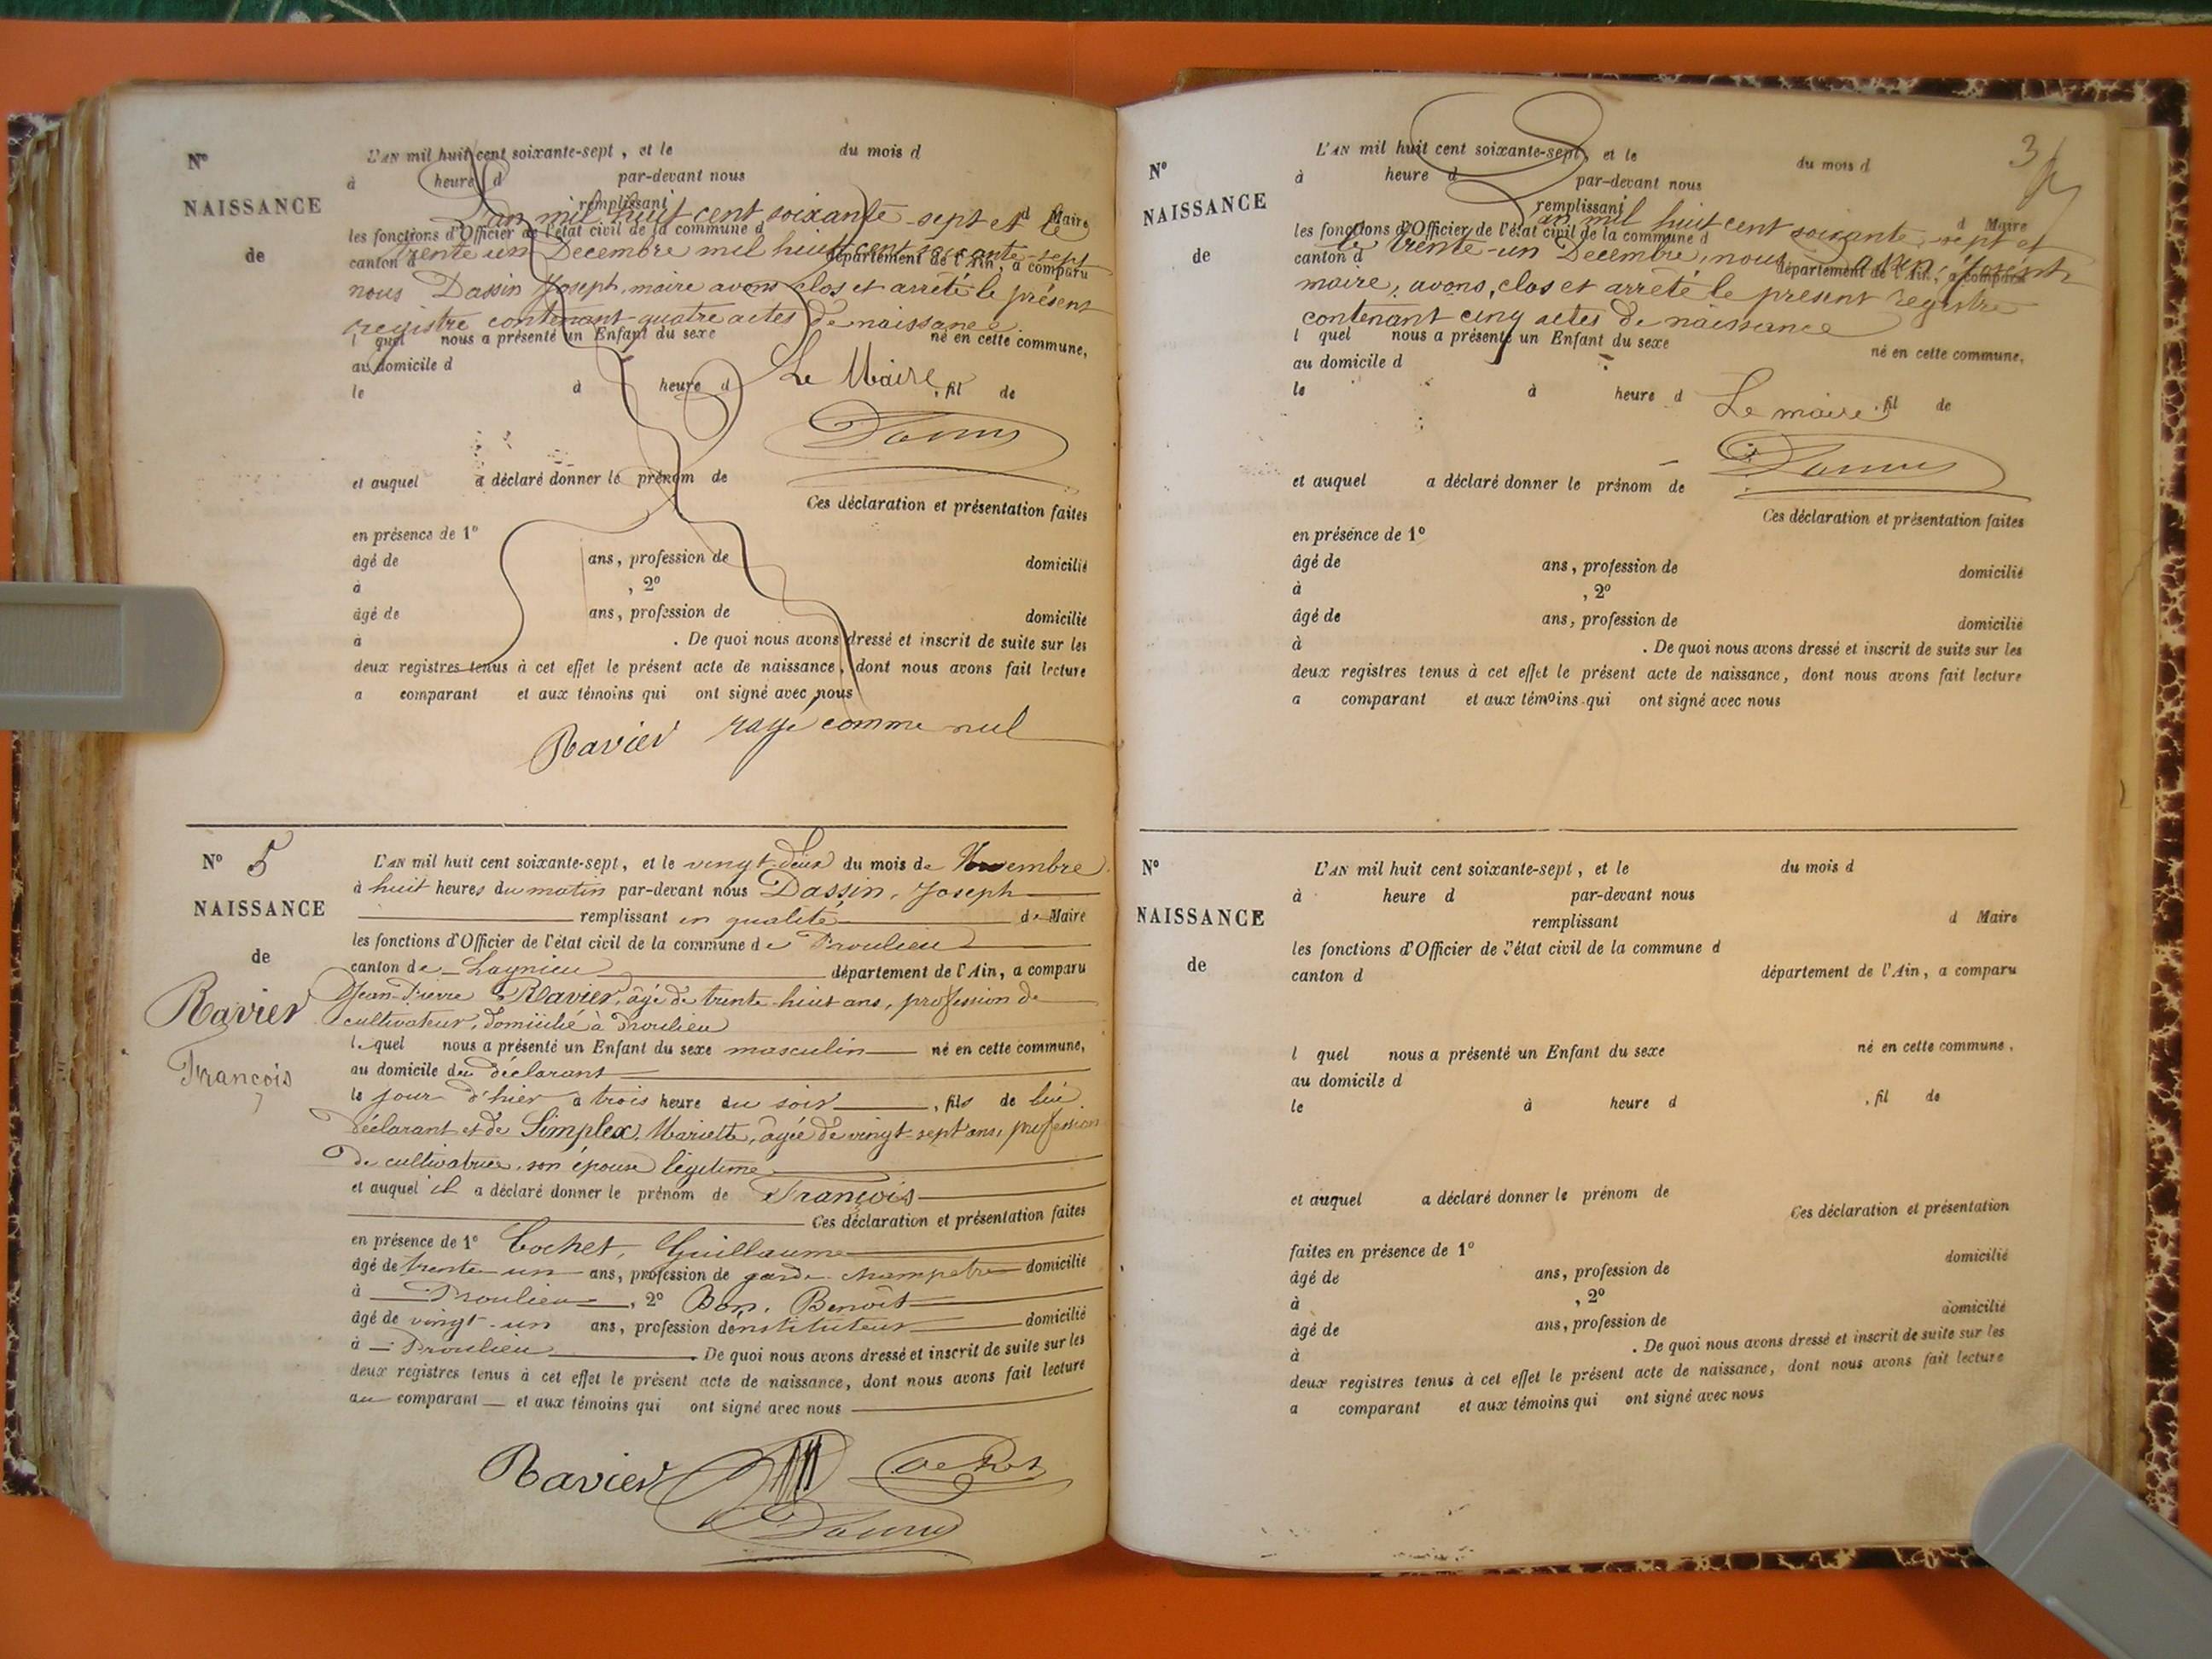 N°
NAISSANCE
de
L'AN mil huit cent soixante-sept, et le du mois d
à heure d par-devant nous
remplissant d Maire
L'an mil huit cent soixante-sept et le
les fonctions d'Officier de l'état civil de la commune d
trente un Decembre mil huit cent soixante-sept
canton d département de l'Ain, a comparu
nous Dassin Joseph, maire avons clos et arrêté le présent
registre contenant quatre actes de naissance.
l quel nous a présenté un Enfant du sexe né en cette commune,
au domicile d
le à heure d Le Maire, fil de
et auquel a déclaré donner le prénom de
Ces déclaration et présentation faites
en présence de 1°
âgé de ans, profession de domicilié
à , 2°
âgé de ans, profession de domicilié
à . De quoi nous avons dressé et inscrit de suite sur les
deux registres tenus à cet effet le présent acte de naissance, dont nous avons fait lecture
a comparant et aux témoins qui ont signé avec nous
Ravier rayé comme nul
N° 5
NAISSANCE
de
Ravier
François
L'AN mil huit cent soixante-sept, et le vingt-deux du mois de Novembre
à huit heures du matin par-devant nous Dassin, Joseph
remplissant en qualité de Maire
les fonctions d'Officier de l'état civil de la commune de Proulieu
canton de Lagnieu département de l'Ain, a comparu
Jean-Pierre Ravier, âgé de trente-huit ans, profession de
cultivateur, domicilié à Proulieu
lequel nous a présenté un Enfant du sexe masculin né en cette commune,
au domicile du déclarant
le jour d'hier à trois heure du soir, fils de lui
déclarant et de Simplex, Mariette, âgée de vingt-sept ans, profession
de cultivatrice, son épouse légitime
et auquel il a déclaré donner le prénom de François
Ces déclaration et présentation faites
en présence de 1° Cochet, Guillaume
âgé de trente-un ans, profession de garde-champetre domicilié
à Proulieu, 2° Bon, Benoît
âgé de vingt-un ans, profession d'instituteur domicilié
à Proulieu. De quoi nous avons dressé et inscrit de suite sur les
deux registres tenus à cet effet le présent acte de naissance, dont nous avons fait lecture
au comparant et aux témoins qui ont signé avec nous
Ravier
3
N°
NAISSANCE
de
L'AN mil huit cent soixante-sept, et le du mois d
à heure d par-devant nous
remplissant d Maire
L'an mil huit cent soixante-sept et
les fonctions d'Officier de l'état civil de la commune d
le trente-un Decembre, nous Dassin, Joseph
canton d département de l'Ain, a comparu
maire, avons, clos et arrêté le présent registre
contenant cinq actes de naissance
l quel nous a présenté un Enfant du sexe né en cette commune,
au domicile d
le à heure d Le maire, fil de
et auquel a déclaré donner le prénom de
Ces déclaration et présentation faites
en présence de 1°
âgé de ans, profession de domicilié
à , 2°
âgé de ans, profession de domicilié
à . De quoi nous avons dressé et inscrit de suite sur les
deux registres tenus à cet effet le présent acte de naissance, dont nous avons fait lecture
a comparant et aux témoins qui ont signé avec nous
N°
NAISSANCE
de
L'AN mil huit cent soixante-sept, et le du mois d
à heure d par-devant nous
remplissant d Maire
les fonctions d'Officier de l'état civil de la commune d
canton d département de l'Ain, a comparu
l quel nous a présenté un Enfant du sexe né en cette commune,
au domicile d
le à heure d , fil de
et auquel a déclaré donner le prénom de
Ces déclaration et présentation
faites en présence de 1° domicilié
âgé de ans, profession de
à , 2° domicilié
âgé de ans, profession de
à . De quoi nous avons dressé et inscrit de suite sur les
deux registres tenus à cet effet le présent acte de naissance, dont nous avons fait lecture
a comparant et aux témoins qui ont signé avec nous